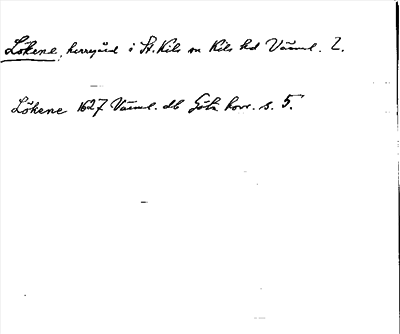 Lökene, herrgård i St. Kils sn Kils hd Värml. l.
Lökene 1627 Värml. db Göta hovr. s. 5.